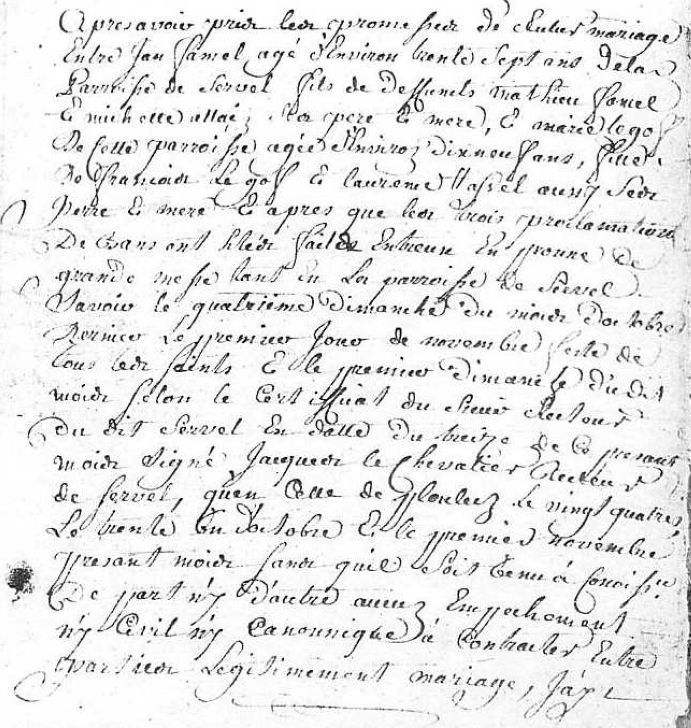 Apres avoir pris les promesses de futur mariage
Entre Jan hamel agé d'Environ trente Sept ans de la
Parroisse de Servel fils de deffunts mathieu hamel
Et michelle allaéz Ses pere Et mere, Et marie le gof
De Cette parroisse agée d'Environ dixneuf ans, fille
De francois Le gof Et laurence Vassel aussy Ses
Perre Et mere Et apres que les trois proclamations
De bans ont Etées faites Entreux En pronne de
grande messe tant En La parroisse de Servel
Savoir le quatriéme dimanche du mois d'octobre
Dernier Le premier Jour de novembre feste de
tous les Saints Et le premier dimanche du dit
mois selon le Certifficat du Sieur Recteur
du dit Servel En datte du treize de Ce presant
mois Signé Jacques le Chevalier Recteur
de Servel, qu'en Cette de ploulec'h Le vingt quatre,
Le trente un d'octobre Et le premier novembre
presant mois sans qu'il soit venu à Conoiss.
De part n'y d'autre aucun Empechement
n'y Civil n'y Canonnique à Contracter Entre
parties Legitimement mariage, J'ay